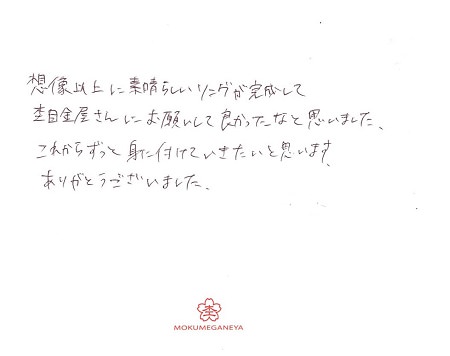 想像以上に素晴らしいリングが完成して
杢目金屋さんにお願いして良かったなと思いました、
これからずっと身に付けていきたいと思います、
ありがとうございました、
杢
MOKUMEGANEYA